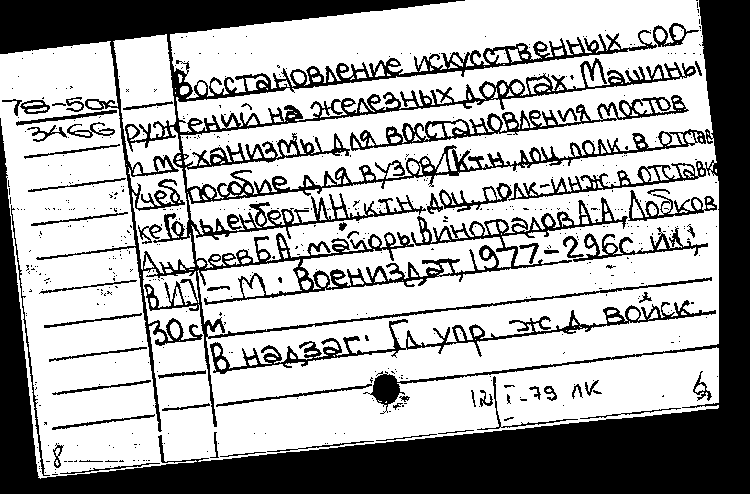 Восстановление искусственных соо-
78-50к
3466
ружений на железных дорогах: Машины
и механизмы для восстановления мостов
Учеб пособие для вузов/[к.т.н., доц., полк. в отстав
ке Гольденберг И.Н.; к.т.н., доц., полк-инж. в отставке
Андреев Б.А; майоры Виноградов А.А., Лобков
В.И.]. – М.: Воениздат, 1977. – 296с. ил.;
30 см.
В надзаг.: Гл. упр. ж.д. войск.
12/I-79 ЛК
8